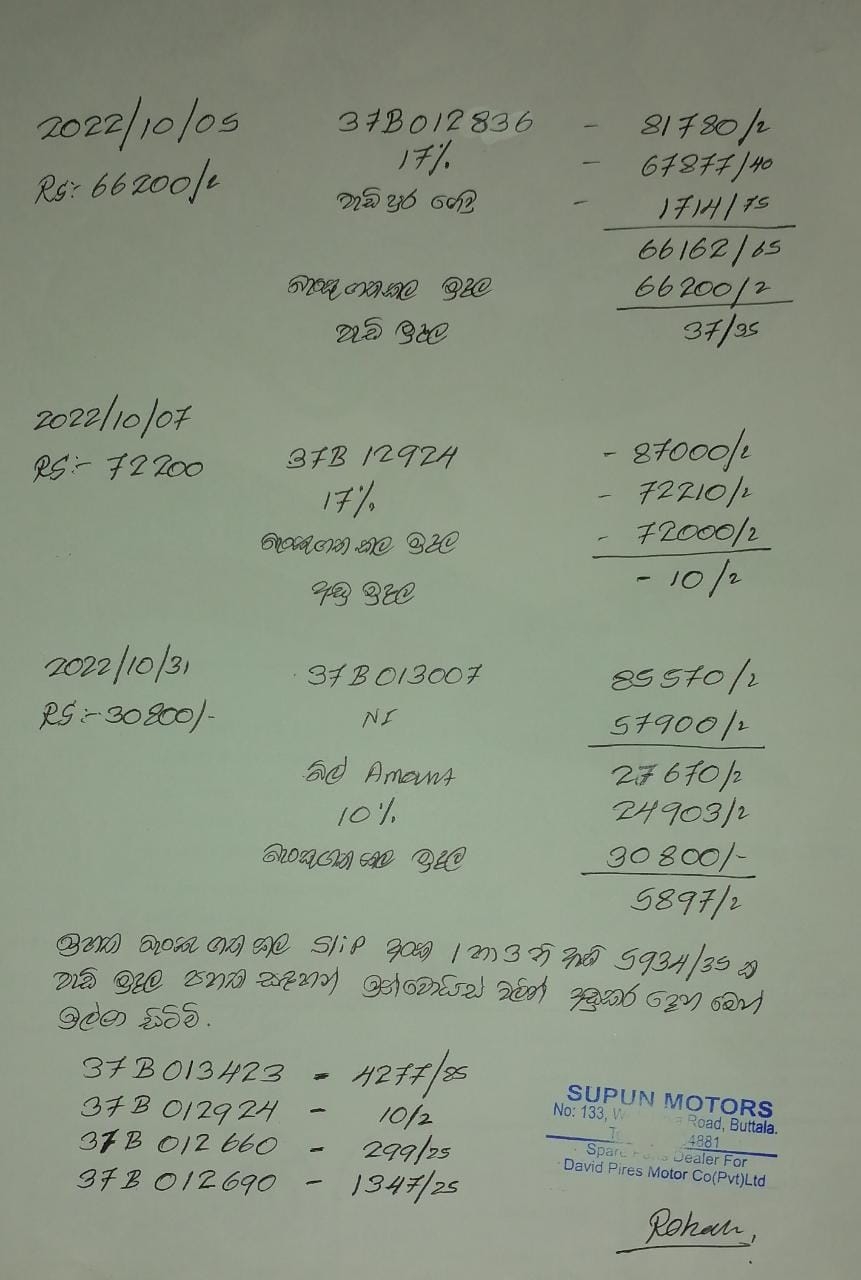 2022/10/05 37B012836 - 81780/2
RS:- 66200/2 17% - 67877/40
වැඩි පුර ගෙවු - 1714/75
66162/65
බැංකුගත කල මුදල 66200/2
වැඩි මුදල 37/35
2022/10/07
RS:- 72200 37B 12924 - 87000/2
17% - 72210/2
බැංකුගත කල මුදල - 72000/2
අඩු මුදල - 10/2
2022/10/31 37B013007 85570/2
RS:- 30800/- NI 57900/2
බිල් Amount 27670/2
10% 24903/2
බැංකුගත කල මුදල 30800/-
5897/2
ඉහත බැංකු ගත කල Slip අංක 1 හා 3 හි ඇති 5934/35 ක
වැඩි මුදල පහත සඳහන් ඉන්වොයිස් වලින් අඩුකර දෙන මෙන්
ඉල්ලා සිටිමි.
37B013423 - 4277/85
37B 012924 - 10/2
37B 012660 - 299/25
37B 012690 - 1347/25
SUPUN MOTORS
No: 133, Road, Buttala.
4881
Spare Parts Dealer For
David Pires Motor Co(Pvt)Ltd
Rohan